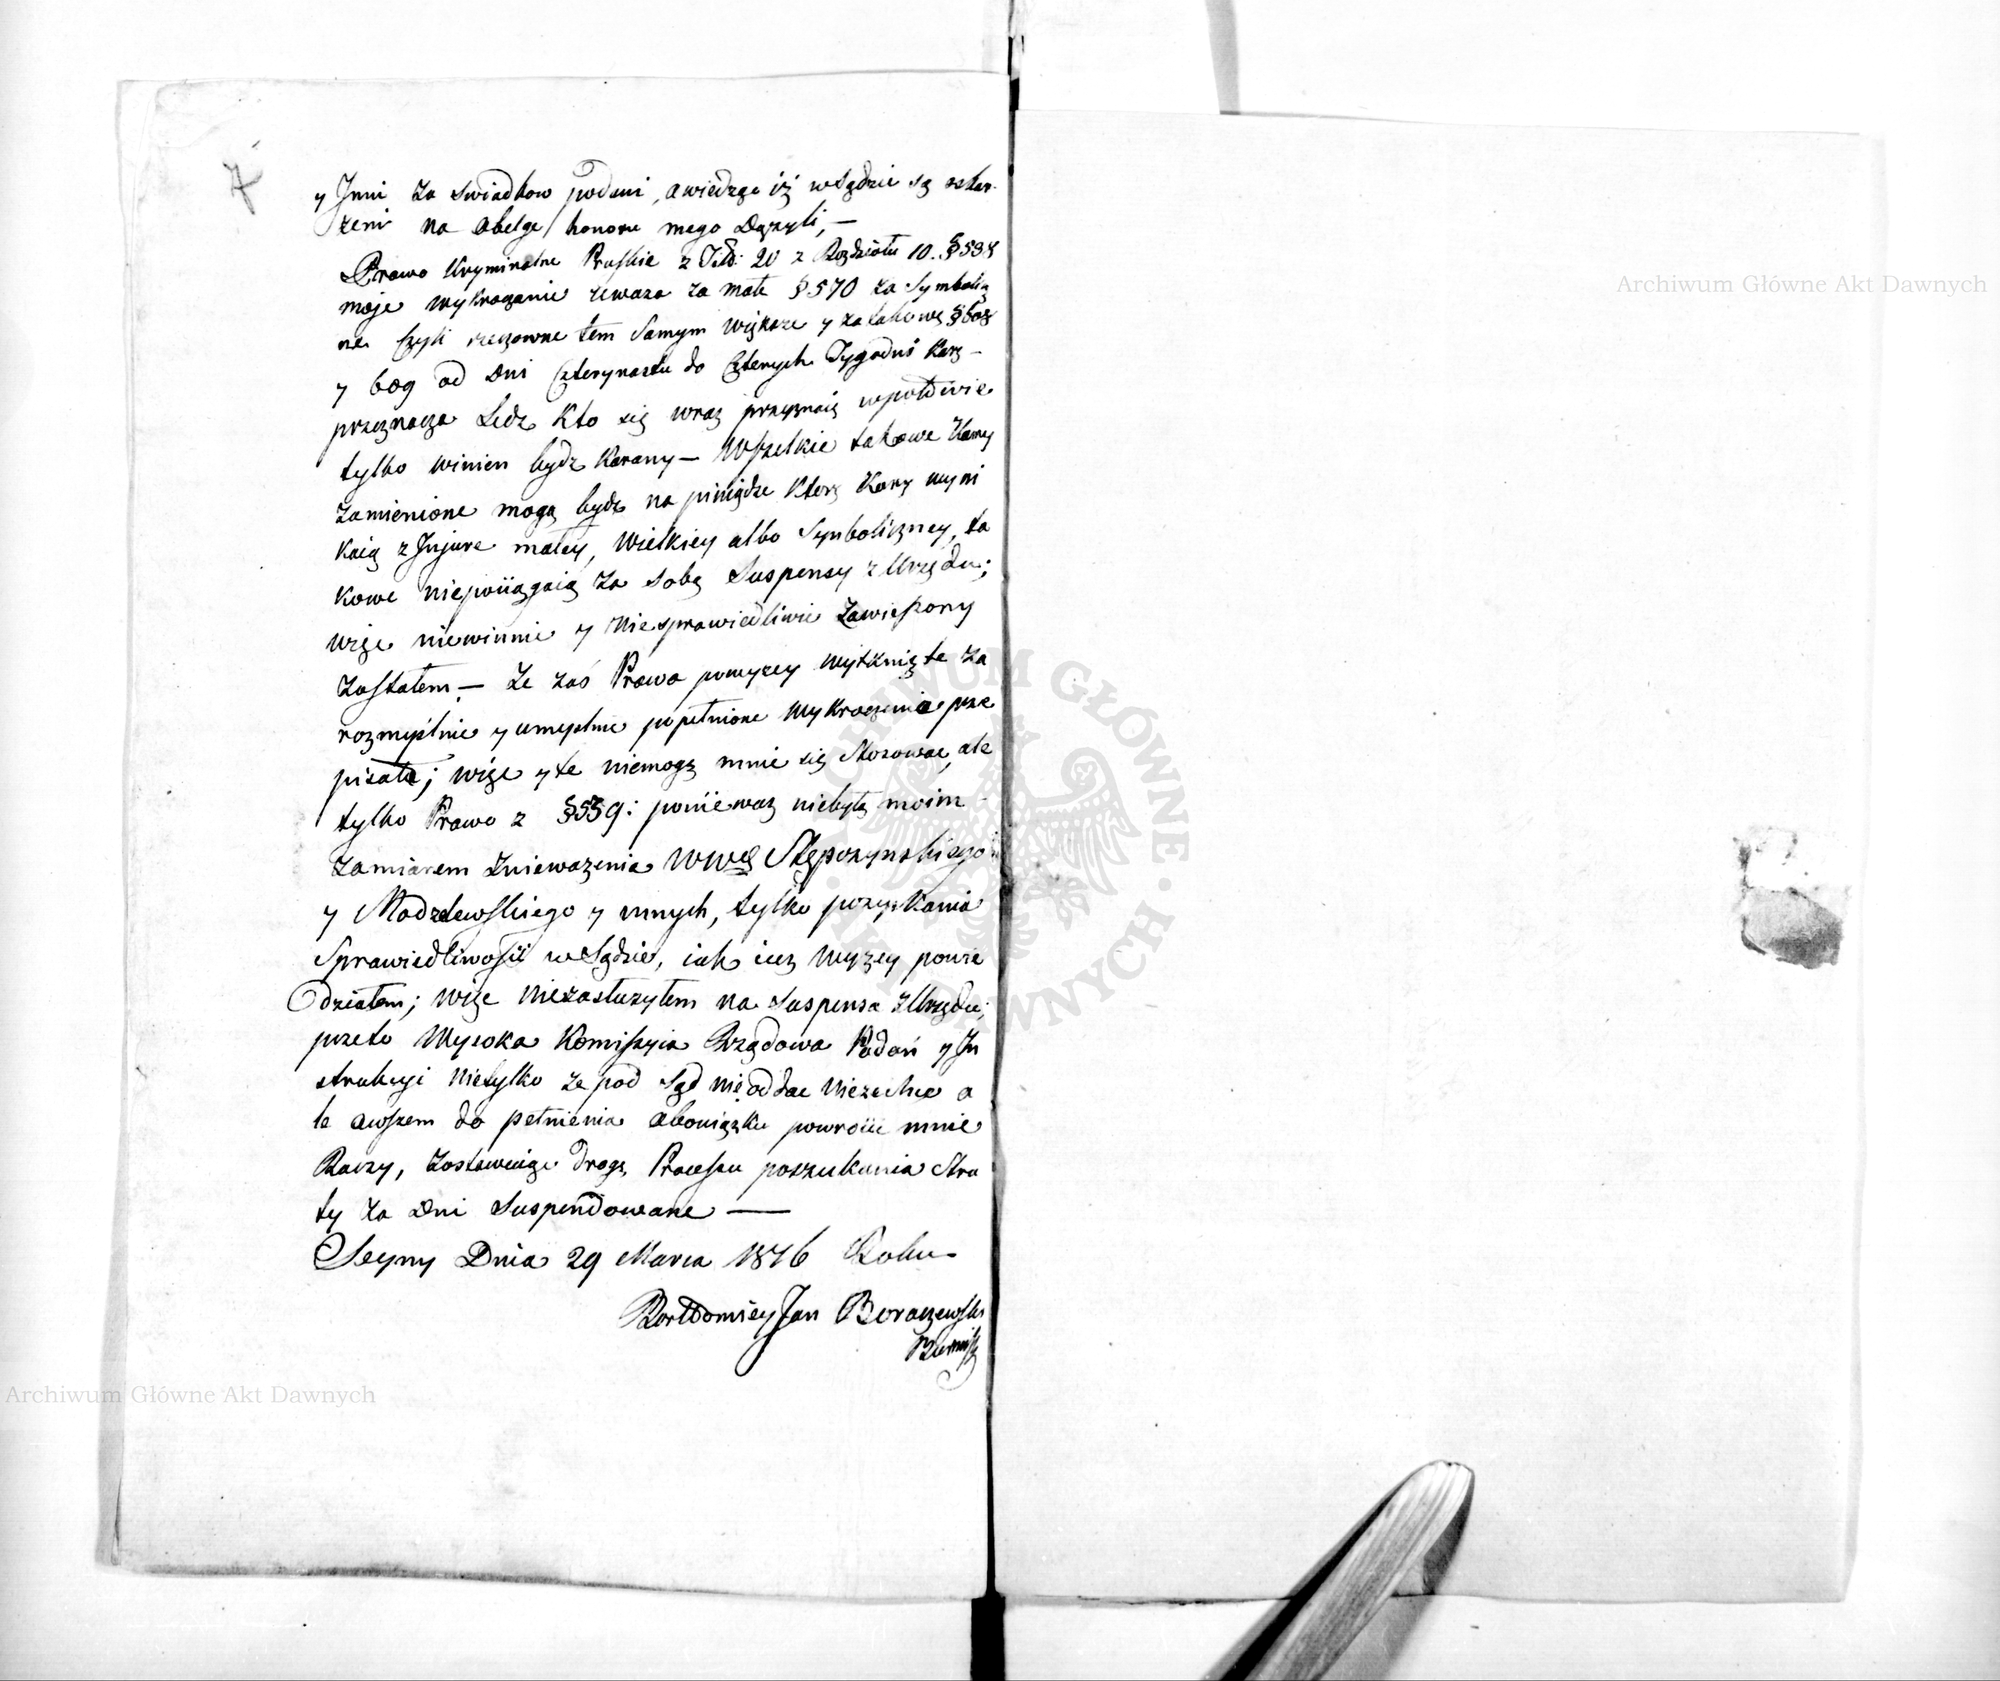 7
y Inni za swiadkow podani, a wiedząc iż w Sądzie są oskar-
żeni na obelgę honoru mego Dążyli,—
Prawo Kryminalne Pruskie z Titł: 20 z Rozdziału 10. § 538
moje wykroczenie uważa za małe § 570 za Symbolicz
ne czyli rzeczowne tem samym większe y za takowe § 608
y 609 od Dni czterynastu do czterych Tygodni karę —
przeznacza Lecz Kto się wraz przyznaię wpołowie
tylko winien bydz karany — Wszelkie takowe Kary
zamienione mogą bydz na piniądze które Kary wyni
kaią z Injure małey, wielkiey albo Symboliczney, ta
kowe niepociągaią za sobą Suspensy z Urzędu;
więc niewinnie y niesprawiedliwie zawieszony
zostałem — Ze zaś Prawo powyżey wytknięte za
rozmyślnie y umyślnie popełnione wykroczenia prze
pisałe; więc y te niemogą mnie się stosować, ale
tylko Prawo z § 559: poniieważ niebyłą moim
zamiarem znieważenia WWch Stępczynskiego
y Modzelewskiego y innych, tylko pozyskania
Sprawiedliwości w Sądzie, iak iuz wyżey powie
działem; więc niezasłużyłem na Suspensa z Urzędu;
przeto Wysoka Kommissyia Rządowa Badań y In
strukcyi nietylko ze pod Sąd nie oddać niezechce a
le owszem do pełnienia obowiązku powrócić mnie
Raczy, zostawuiąc drogę Processu poszukania Stra
ty za Dni Suspendowane —
Seyny Dnia 29 Marca 1816 Roku
Bartłomiey Jan Boraczewski
Burmisz
Archiwum Główne Akt Dawnych
Archiwum Główne Akt Dawnych
ARCHIWUM GŁÓWNE AKT DAWNYCH